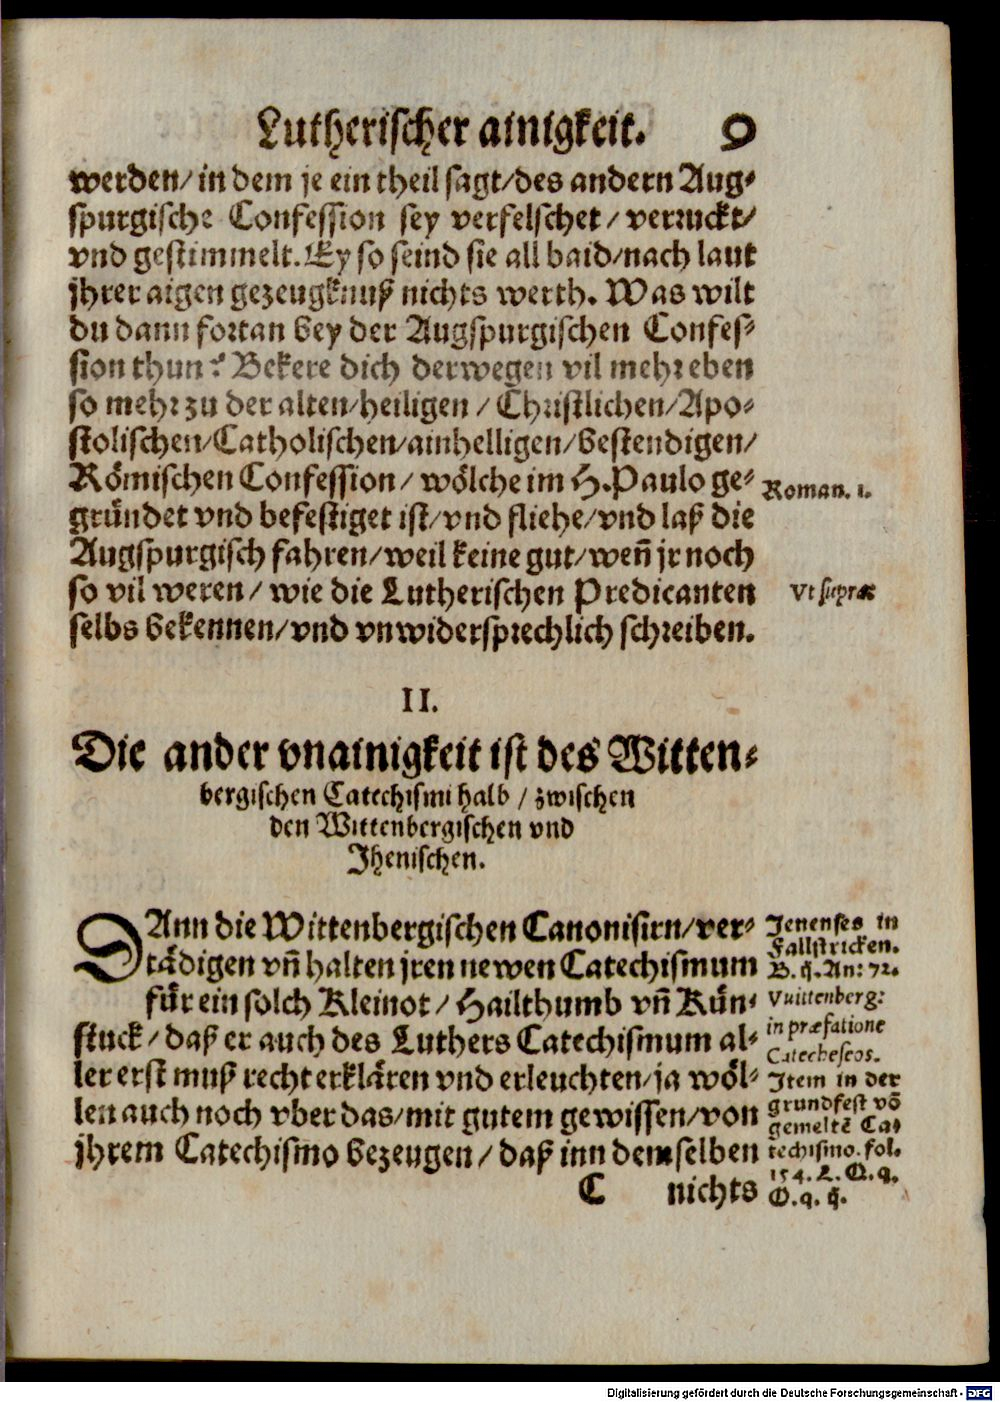 Lutherischer ainigkeit. 9
werden/ in dem je ein theil sagt/ des andern Aug⸗
spurgische Confession sey verfelschet/ verruckt/
vnd gestimmelt. Ey so seind sie all baid/ nach laut
jhrer aigen gezeugknuß nichts werth. Was wilt
du dann fortan bey der Augspurgischen Confes⸗
sion thun? Bekere dich derwegen vil mehr eben
so mehr zu der alten/ heiligen/ Christlichen/ Apo⸗
stolischen/ Catholischen/ ainhelligen/ bestendigen/
Römischen Confession/ wölche im H. Paulo ge⸗
Roman. 1.
gründet vnd befestiget ist/ vnd fliehe/ vnd laß die
Augspurgisch fahren/ weil keine gut/ weñ jr noch
so vil weren/ wie die Lutherischen Predicanten
Vt supra
selbs bekennen/ vnd vnwidersprechlich schreiben.
II.
Die ander vnainigkeit ist des Witten⸗
bergischen Catechismi halb/ zwischen
den Wittenbergischen vnd
Jhenischen.
DAnn die Wittenbergischen Canonisirn/ ver⸗
tädigen vñ halten jren newen Catechismum
für ein solch Kleinot/ Hailthumb vñ Kün⸗
stuck/ daß er auch des Luthers Catechismum al⸗
ler erst muß recht erklären vnd erleuchten/ ja wöl⸗
len auch noch vber das/ mit gutem gewissen/ von
jhrem Catechismo bezeugen/ daß inn demselben
C nichts
Jenenses in
Fallstricken.
B. ij. An: 72.
Vuittenberg:
in præfatione
Catecheseos.
Item in der
grundfest võ
gemeltē Ca⸗
techismo. fol.
154. L. Q. q.
O. q. ij.
Digitalisierung gefördert durch die Deutsche Forschungsgemeinschaft - DFG